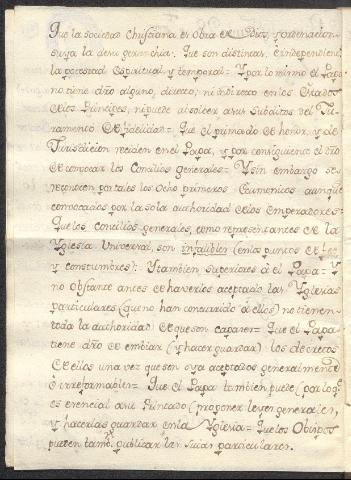 Que la Sociedad Christiana es Obra de Dios, y ordenacion
suya la de su gerarchia. Que son distintas, é independientes
la potestad Espiritual, y temporal = Y por lo mismo el Papa
no tiene dño alguno, directo, ni indirecto en los Estados
de los Principes, ni puede absolver a sus Subditos del Ju-
ramento de fidelidad = Que el primado de honor, y de
Jurisdicion residen en el Papa, y por consiguiente el dño
de convocar los Concilios generales = Y sin embargo se
reconocen por tales los Ocho primeros Ecumenicos aunque
convocados por la sola authoridad de los Emperadores =
Que los concilios generales, como representantes de la
Yglesia Universal, son infalibles (en los puntos de fee
y constumbres): Y tambien superiores à el Papa = Y
no Obstante antes de haverlos aceptado las Yglesias
particulares (que no han concurrido à ellos) no tienen
toda la authoridad de que son capaces = Que el Papa
tiene dño de embiar (y hacer guardar) los decretos
de ellos una vez que son ya aceptados generalmente
é irreformables = Que el Papa tambien puede (por lo q.e
es esencial a su Primado) proponer leyes generales,
y hacerlas guardar en la Yglesia = Que los Obispos
pueden tam.n publicar las suias particulares.